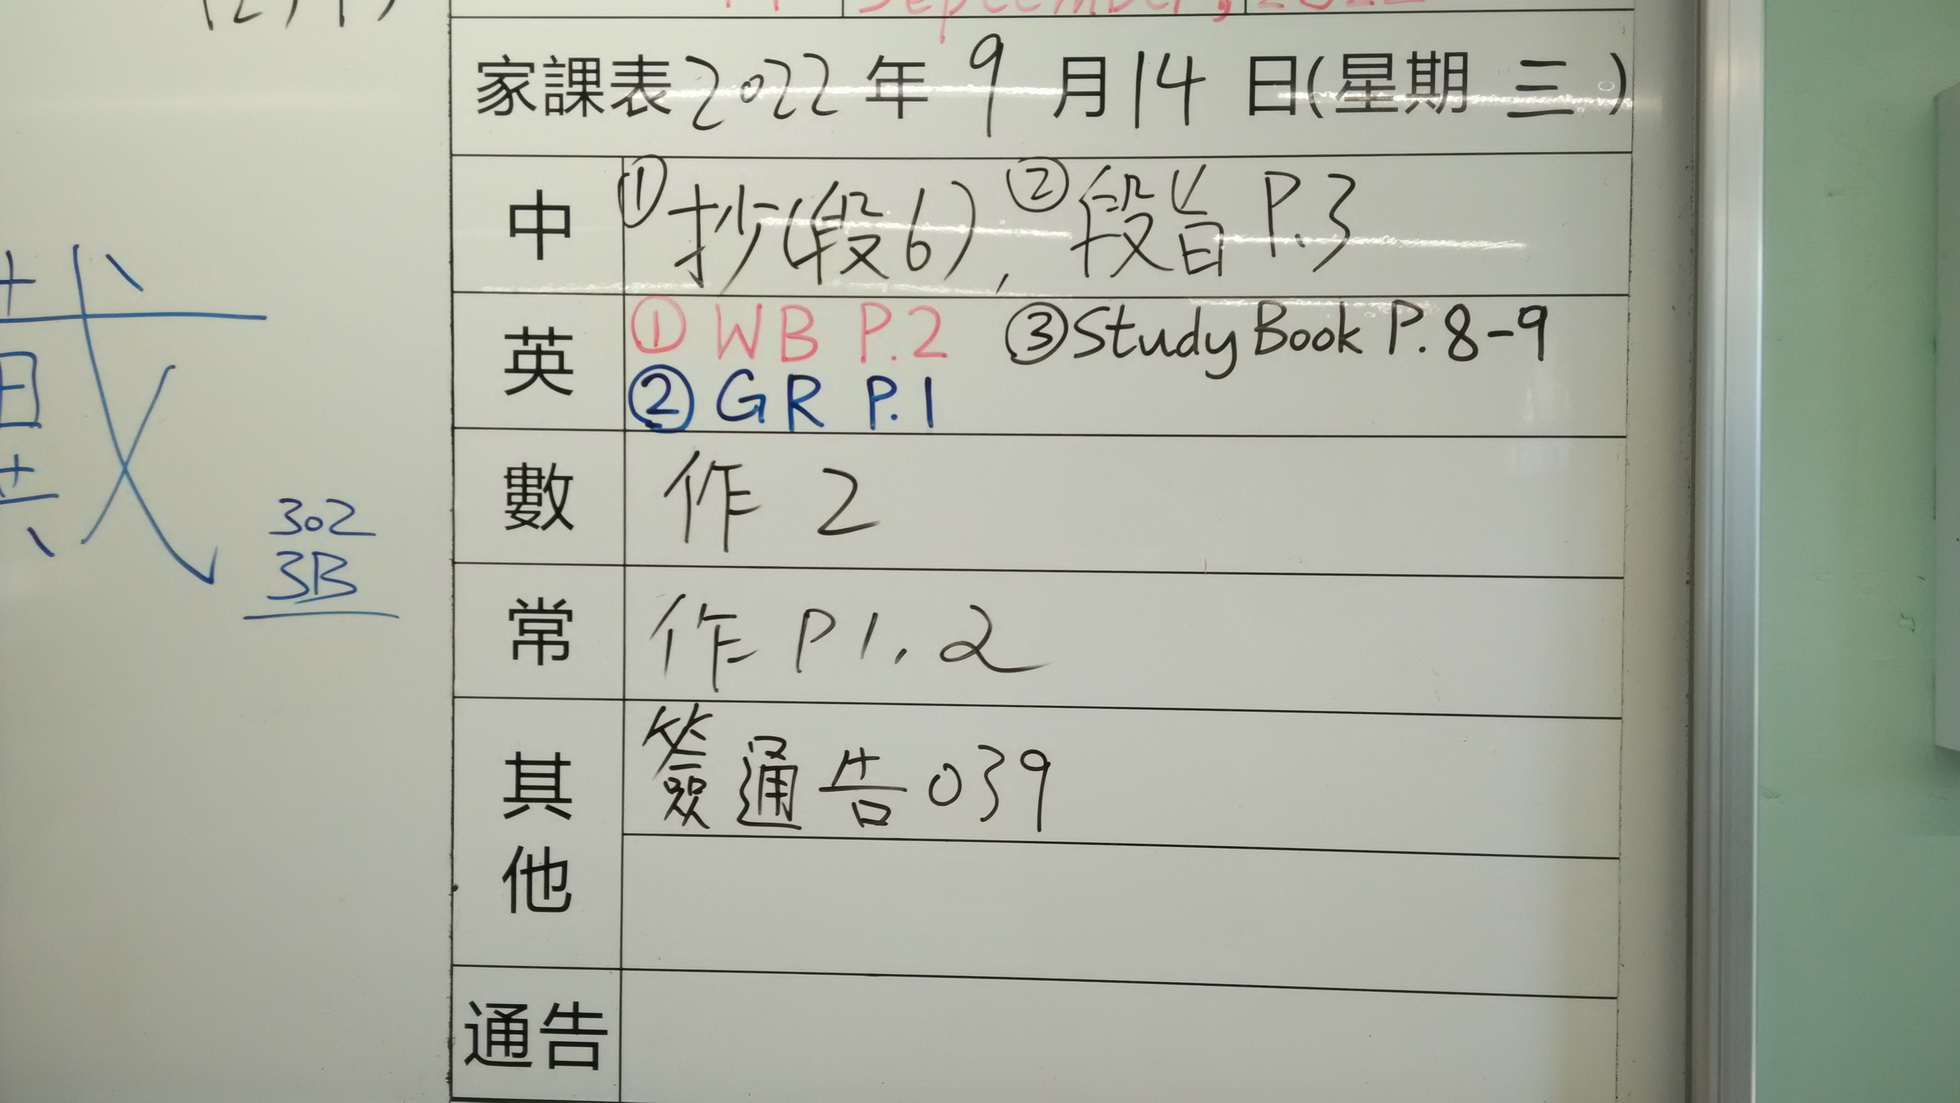 September, 2022
家課表2022年9月14日(星期三)
中 ①抄(段6), ②段旨 P.3
英 ① WB P.2 ③Study Book P.8-9
② GR P.1
數 作 2
常 作 P1, 2
其他 簽通告039
通告
戴
302
3B